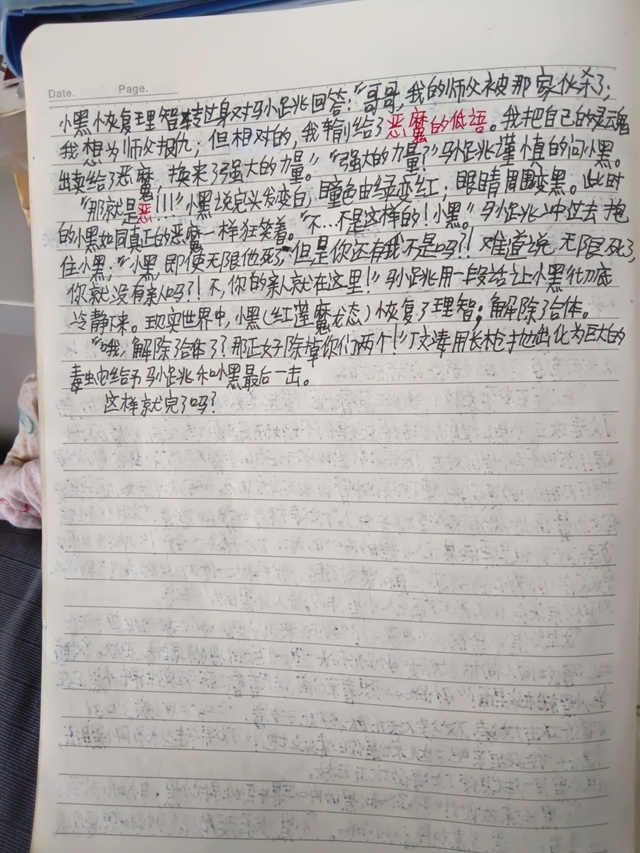 Date. Page.
小黑恢复理智转过身对马小跳回答："哥哥,我的师父被那家伙杀了;
我想为师父报仇; 但相对的,我输给了恶魔的低语。我把自己的灵魂
出卖给了恶魔,换来了强大的力量。""强大的力量?"马小跳谨慎的问小黑。
"那就是恶!!!"小黑说完头发变白,瞳色由绿变红; 眼睛周围变黑。此时
的小黑如同真正的恶魔一样狂笑着。"不…不是这样的!小黑。"马小跳冲过去抱
住小黑;"小黑,即使无限他死了,但是你还有我不是吗?! 难道说无限死了,
你就没有亲人吗?! 不,你的亲人就在这里!"马小跳用一段话让小黑彻底
冷静下来。现实世界中,小黑(红莲魔龙态)恢复了理智;解除了合体。
"哦,解除了合体了?那正好除掉你们两个!"丁文涛用长枪打出化为巨大的
毒虫它给予马小跳和小黑最后一击。
这样就完了吗?